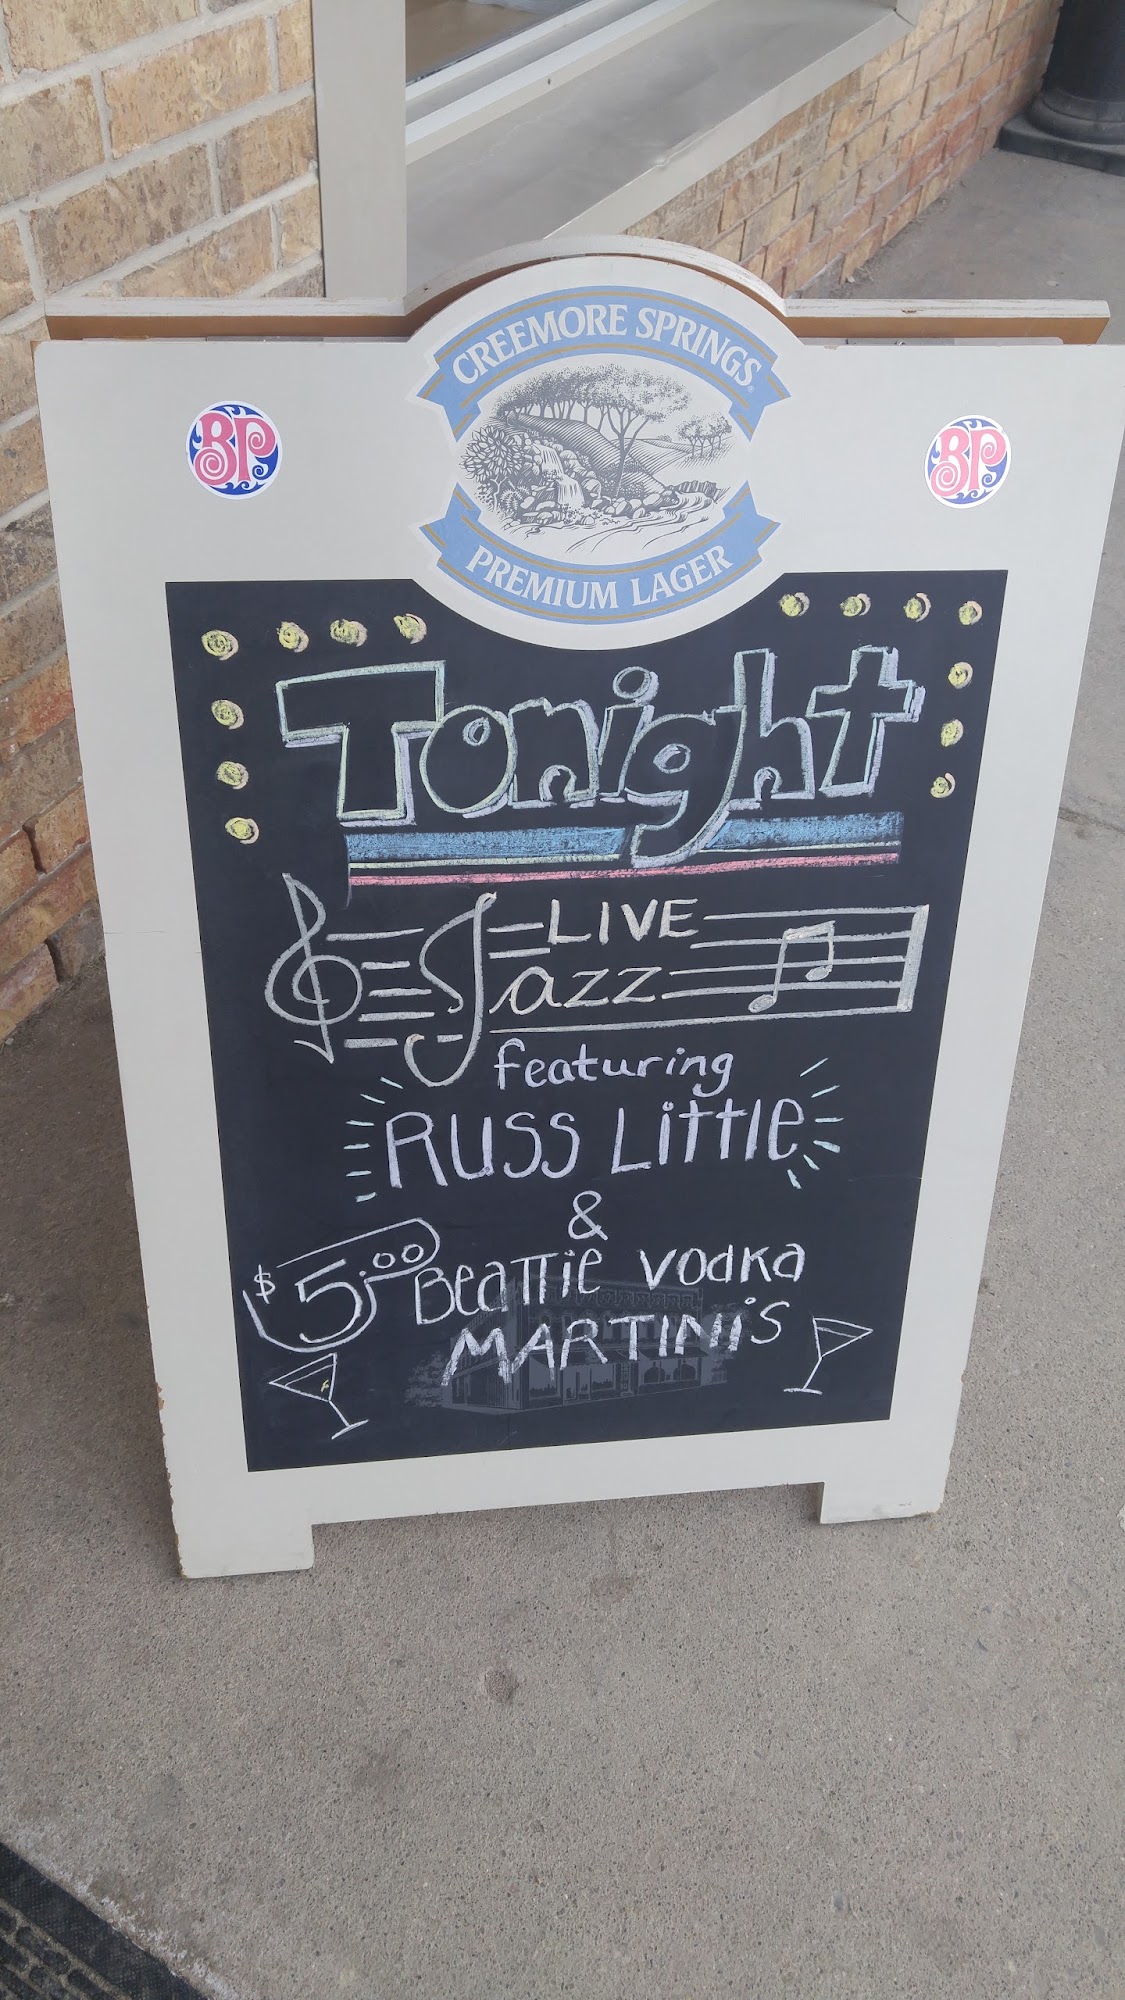 CREEMORE SPRINGS®
BP
BP
PREMIUM LAGER
Tonight
LIVE
Jazz
featuring
RUSS LittLe
&
$5.00 BEATTie VODKA
MARTINI'S